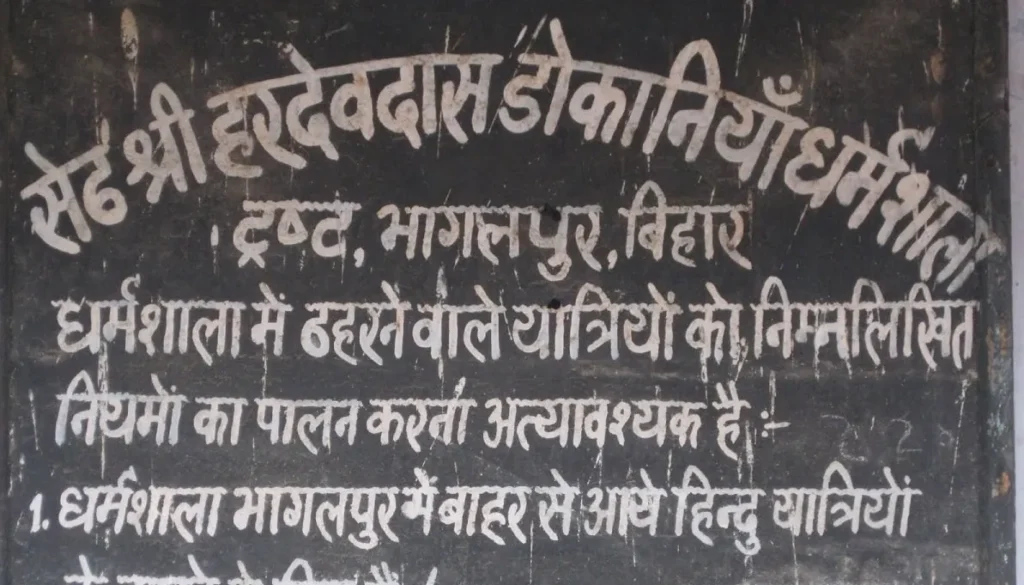 सेठ श्री हरदेवदास डोकानियाँ धर्मशाला
ट्रष्ट, भागलपुर, बिहार
धर्मशाला में ठहरने वाले यात्रियों को, निम्नलिखित
नियमों का पालन करना अत्यावश्यक है :-
1. धर्मशाला भागलपुर में बाहर से आये हिन्दु यात्रियों